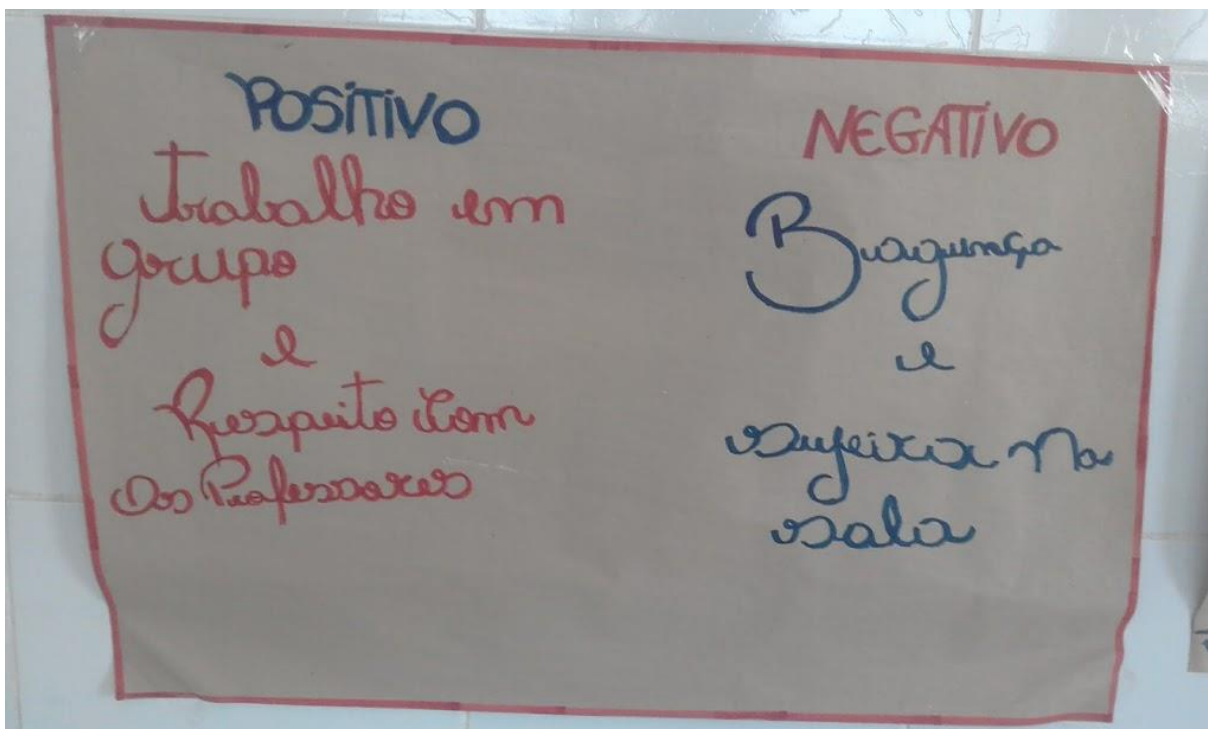 POSITIVO
Trabalho em
grupo
e
Respeito com
os Professores
NEGATIVO
Bragunça
e
sujeira na
sala